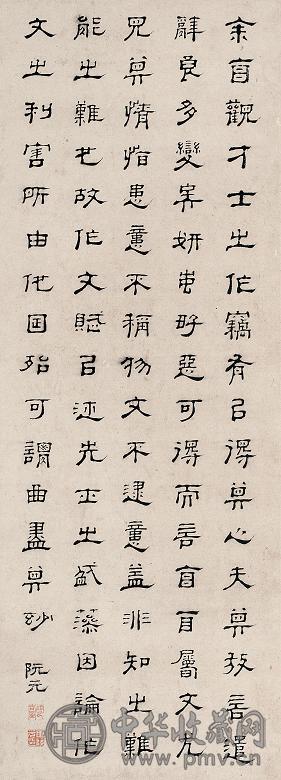 余每觀才士之作竊有以得其心夫其放言遣
辭良多變矣妍蚩好惡可得而言每自屬文尤
見其情恆患意不稱物文不逮意蓋非知之難
能之難也故作文賦以述先士之盛藻因論作
文之利害所由他日殆可謂曲盡其妙 阮元
中华收藏网
www.pmv.cn